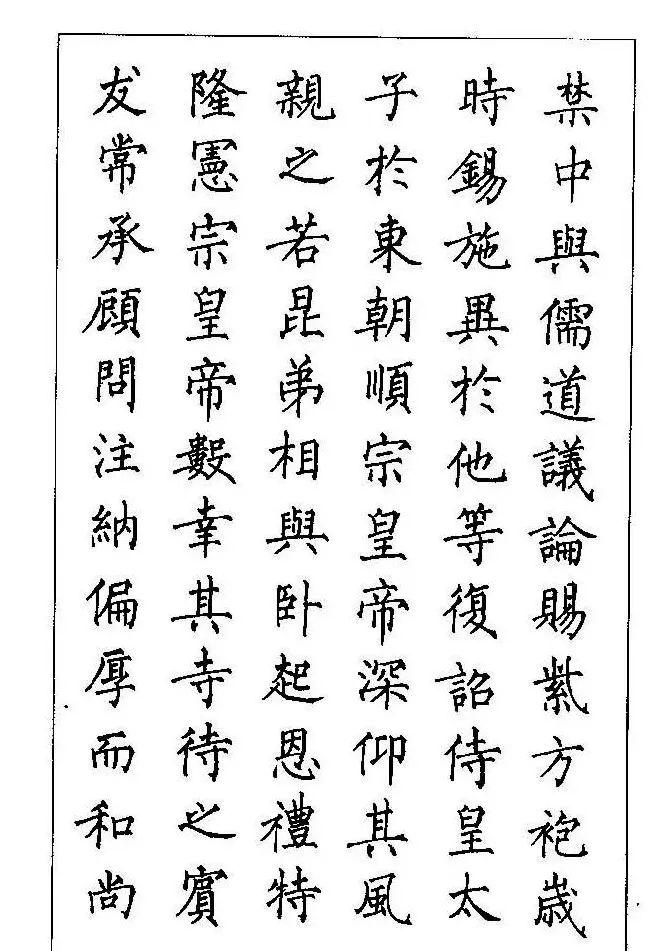 禁中與儒道議論賜紫方袍歲
時錫施異於他等復詔侍皇太
子於東朝順宗皇帝深仰其風
親之若昆弟相與卧起恩禮特
隆憲宗皇帝數幸其寺待之賓
友常承顧問注納偏厚而和尚